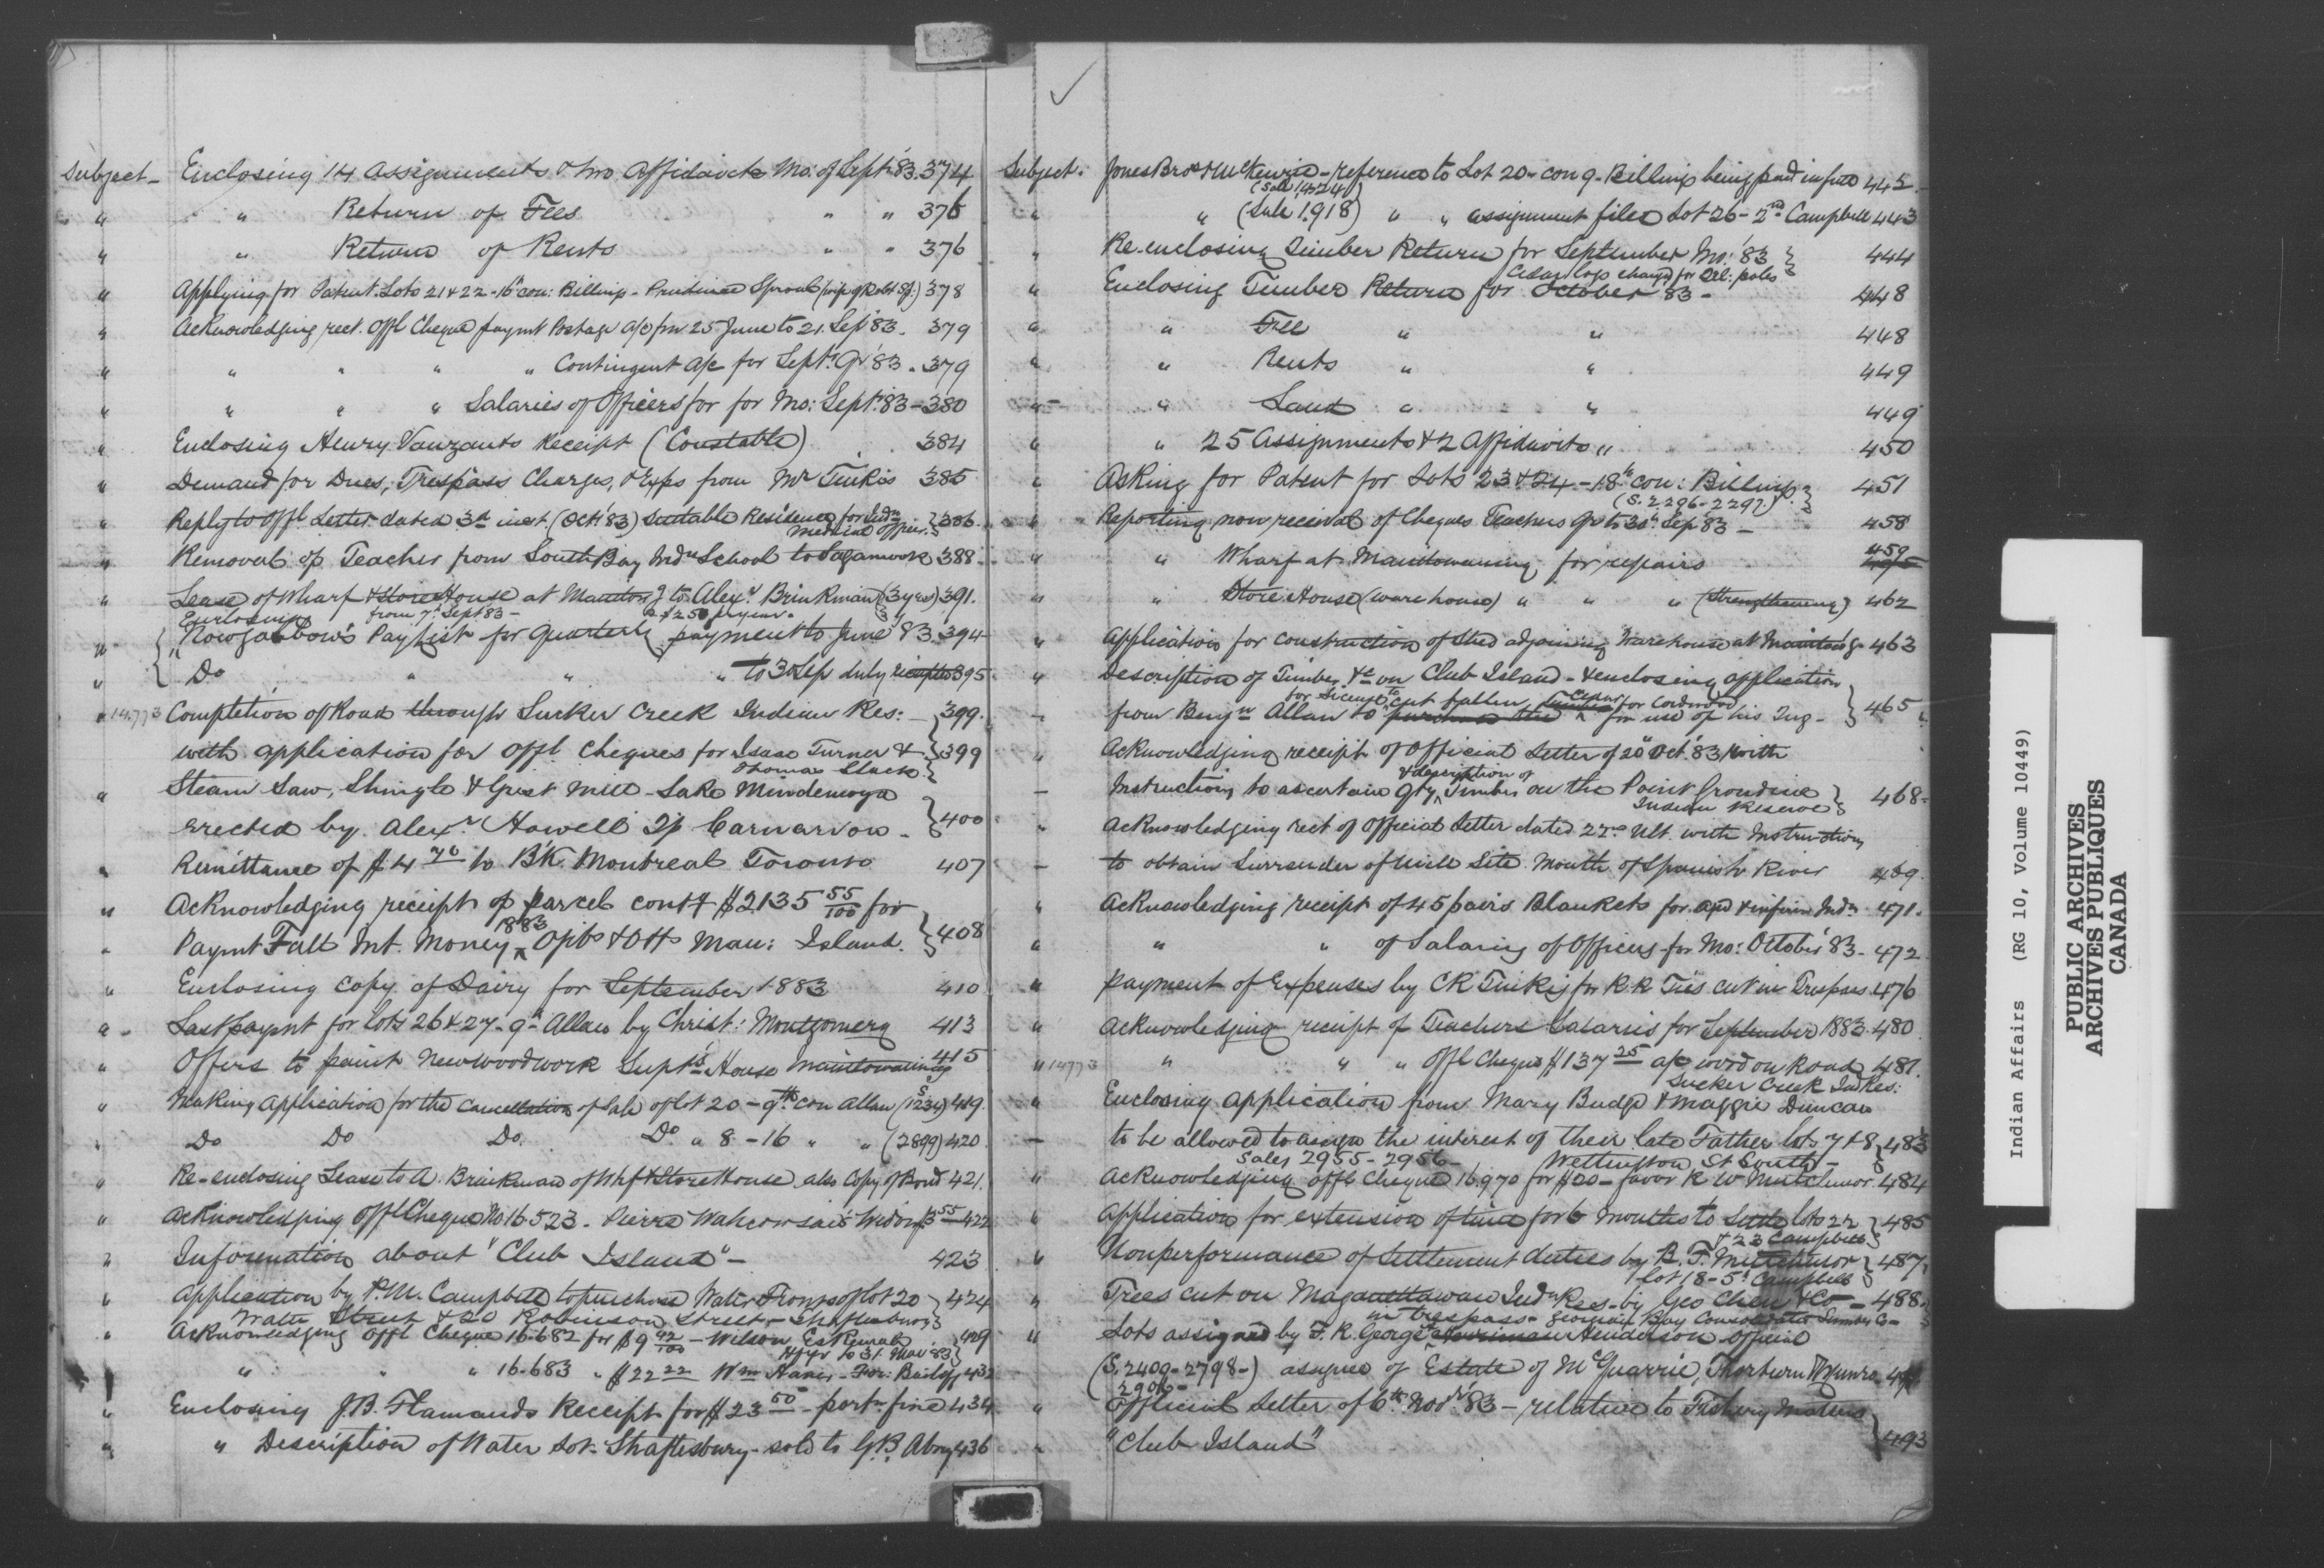 Subject – Enclosing 14 Assignments & two Affidavits Mo: of Sept: '83. 374
" " Return of Fees " " 376
" " Return of Rents " " 376
" Applying for Patent Lots 21 & 22 - 16th con: Billings - Prudence Sproul (wife of Robt S.) 378
" Acknowledging rect. Offl Cheque paymt Postage a/c fm 25 June to 21 Sep '83. 379
" " " " " Contingent a/c for Sept: Qr '83. 379
" " " " Salaries of Officers for for Mo: Sept: '83 - 380
" Enclosing Henry Vanzants Receipt (Constable) 384
" Demand for Dues, Trespass Charges, & Exps from Mr Tinkis 385
" Reply to Offl Letter dated 3d inst. (Oct: '83) Suitable Residence for Indn } 386
Medical Officer.
" Removal of Teacher from South Bay Indn School to 388
" Lease of Wharf & Store House at Alexr Brinkman (3 yrs) 391.
from 7th Sept 83 - @ $250 per year.
Enclosing
" Nowgabbow's Paylist for quarterly payment to June '83. 394
" Do " " " to 30 Sep duly 395
" 14,773 Completion of Road through Sucker Creek Indian Res: – 399.
with application for Offl Cheques for Isaac Turner & } 399
Thomas Slack
" Steam Saw, Shingle & Grist Mill - Lake Mindemoya
erected by Alexr Howell Tp Carnarvon - } 400
" Remittance of $4 70 to B'K Montreal Toronto 407
" Acknowledging receipt of parcel cont'g $2135 55/100 for
" Paymt Fall Int. Money 1883 Ojibs & Otts Man: Island. } 408
" Enclosing Copy of Dairy for September 1883 410
" Last paymt for lots 26 & 27 - 9th Allan by Christ: Montgomery 413
" Offers to paint New woodwork Supt's House Manitowaning 415
" Making Application for the Cancellation of Sale of lot 20 - 9th con Allan (S 1234) 419.
" Do Do Do. Do " 8 - 16 " " (2899) 420
" Re-enclosing Lease to A. Brinkman of Whf & Store House also Copy of Bond 421.
" Acknowledging Offl Cheque No 16523. Pierre Widow 422
" Information about "Club Island" – 423
" Application by P. M. Campbell to purchase Water Fronts of lot 20 } 424
Water Street & 20 Robinson Street - Shaftesbury
" Acknowledging Offl Cheque 16.682 for $9 42/100 - Wilson 429
to 31 Mar 83
" " " " 16.683 " $22 22 Wm 432
" Enclosing J.B. Flamands Receipt for $23 50 - portn fine 434
" " Description of Water Lot. Shaftesbury - sold to G.B. Abrey 436
Subject. Jones Bros & McKenzie - reference to Lot 20 - con 9 - Billings being paid in full 442.
(Sale 1424)
" " (Sale 1918) " " assignment filed Lot 26 - 2nd Campbell 443
" Re-enclosing Timber Return for September Mo: '83 } 444
Cedar logs charged for tel: poles
" Enclosing Timber Return for October 83 - 448
" " Fee " " 448
" " Rents " " 449
" " Land " " 449
" " 25 Assignments & 2 Affidavits " 450
" Asking for Patent for Lots 23 & 24 - 18th con: Billings. } 451
(S. 2296 - 2297)
" Reporting non receival of Cheques Teachers Qr to 30th Sep '83 - 458
" " Wharf at Manitowaning for repairs 459
" " Store House (ware house) " " " (strengthening) 462
" Application for construction of Shed adjoining Warehouse at 463
" Description of Timber &c on Club Island - & enclosing application
for License to cut fallen Cedar for Cordwood
– from Benjn Allan to for use of his Tug - } 465
" Acknowledging receipt of Official Letter of 20th Oct: '83 with
& description of
– Instructions to ascertain Qty Timber on the Point Grondine } 468
Indian Reserve
" Acknowledging rect of Official Letter dated Ult. with Instructions
– to obtain Surrender of Mill Site Mouth of Spanish River 469.
" Acknowledging receipt of 45 pairs Blankets for aged & infirm Indns 471.
" " " of Salaries of Officers for Mo: October '83 - 472
" Payment of Expenses by C R Tinkis for R.R. Ties cut in Trespass 476
" Acknowledging receipt of Teachers Salaries for September 1883. 480
" 14773 " " " Offl Cheque $137 25 a/c work on Road 481.
Sucker Creek Ind Res:
" Enclosing Application from Mary Budge & Maggie Duncan
– to be allowed to assign the interest of their late Father lots 7 & 8 } 483
Sales 2955 - 2956 - Wellington St South -
" Acknowledging offl Cheque 16.970 for $20 - favor R W Mutchmor 484
" Application for extension of time for 6 months to Settle lots 22 } 485
& 23 Campbell
" Nonperformance of Settlement duties by B. F. Mutchmor } 487
lot 18 - 5th Campbell
" Trees cut on Maganettawan Indn Res - by Geo Chew & Co - 488
in trespass - Georgian Bay Consolidated Lumber Co -
" Lots assigned by F. R. George Henderson Official
(S. 2409 - 2798 -) assignee of Estate of McQuarrie, Thorburn & Munro
2906 -
" Official Letter of 6th Novr '83 - relative to Fishery Matters
" "Club Island" } 493
Indian Affairs (RG 10, Volume 10449)
PUBLIC ARCHIVES
ARCHIVES PUBLIQUES
CANADA